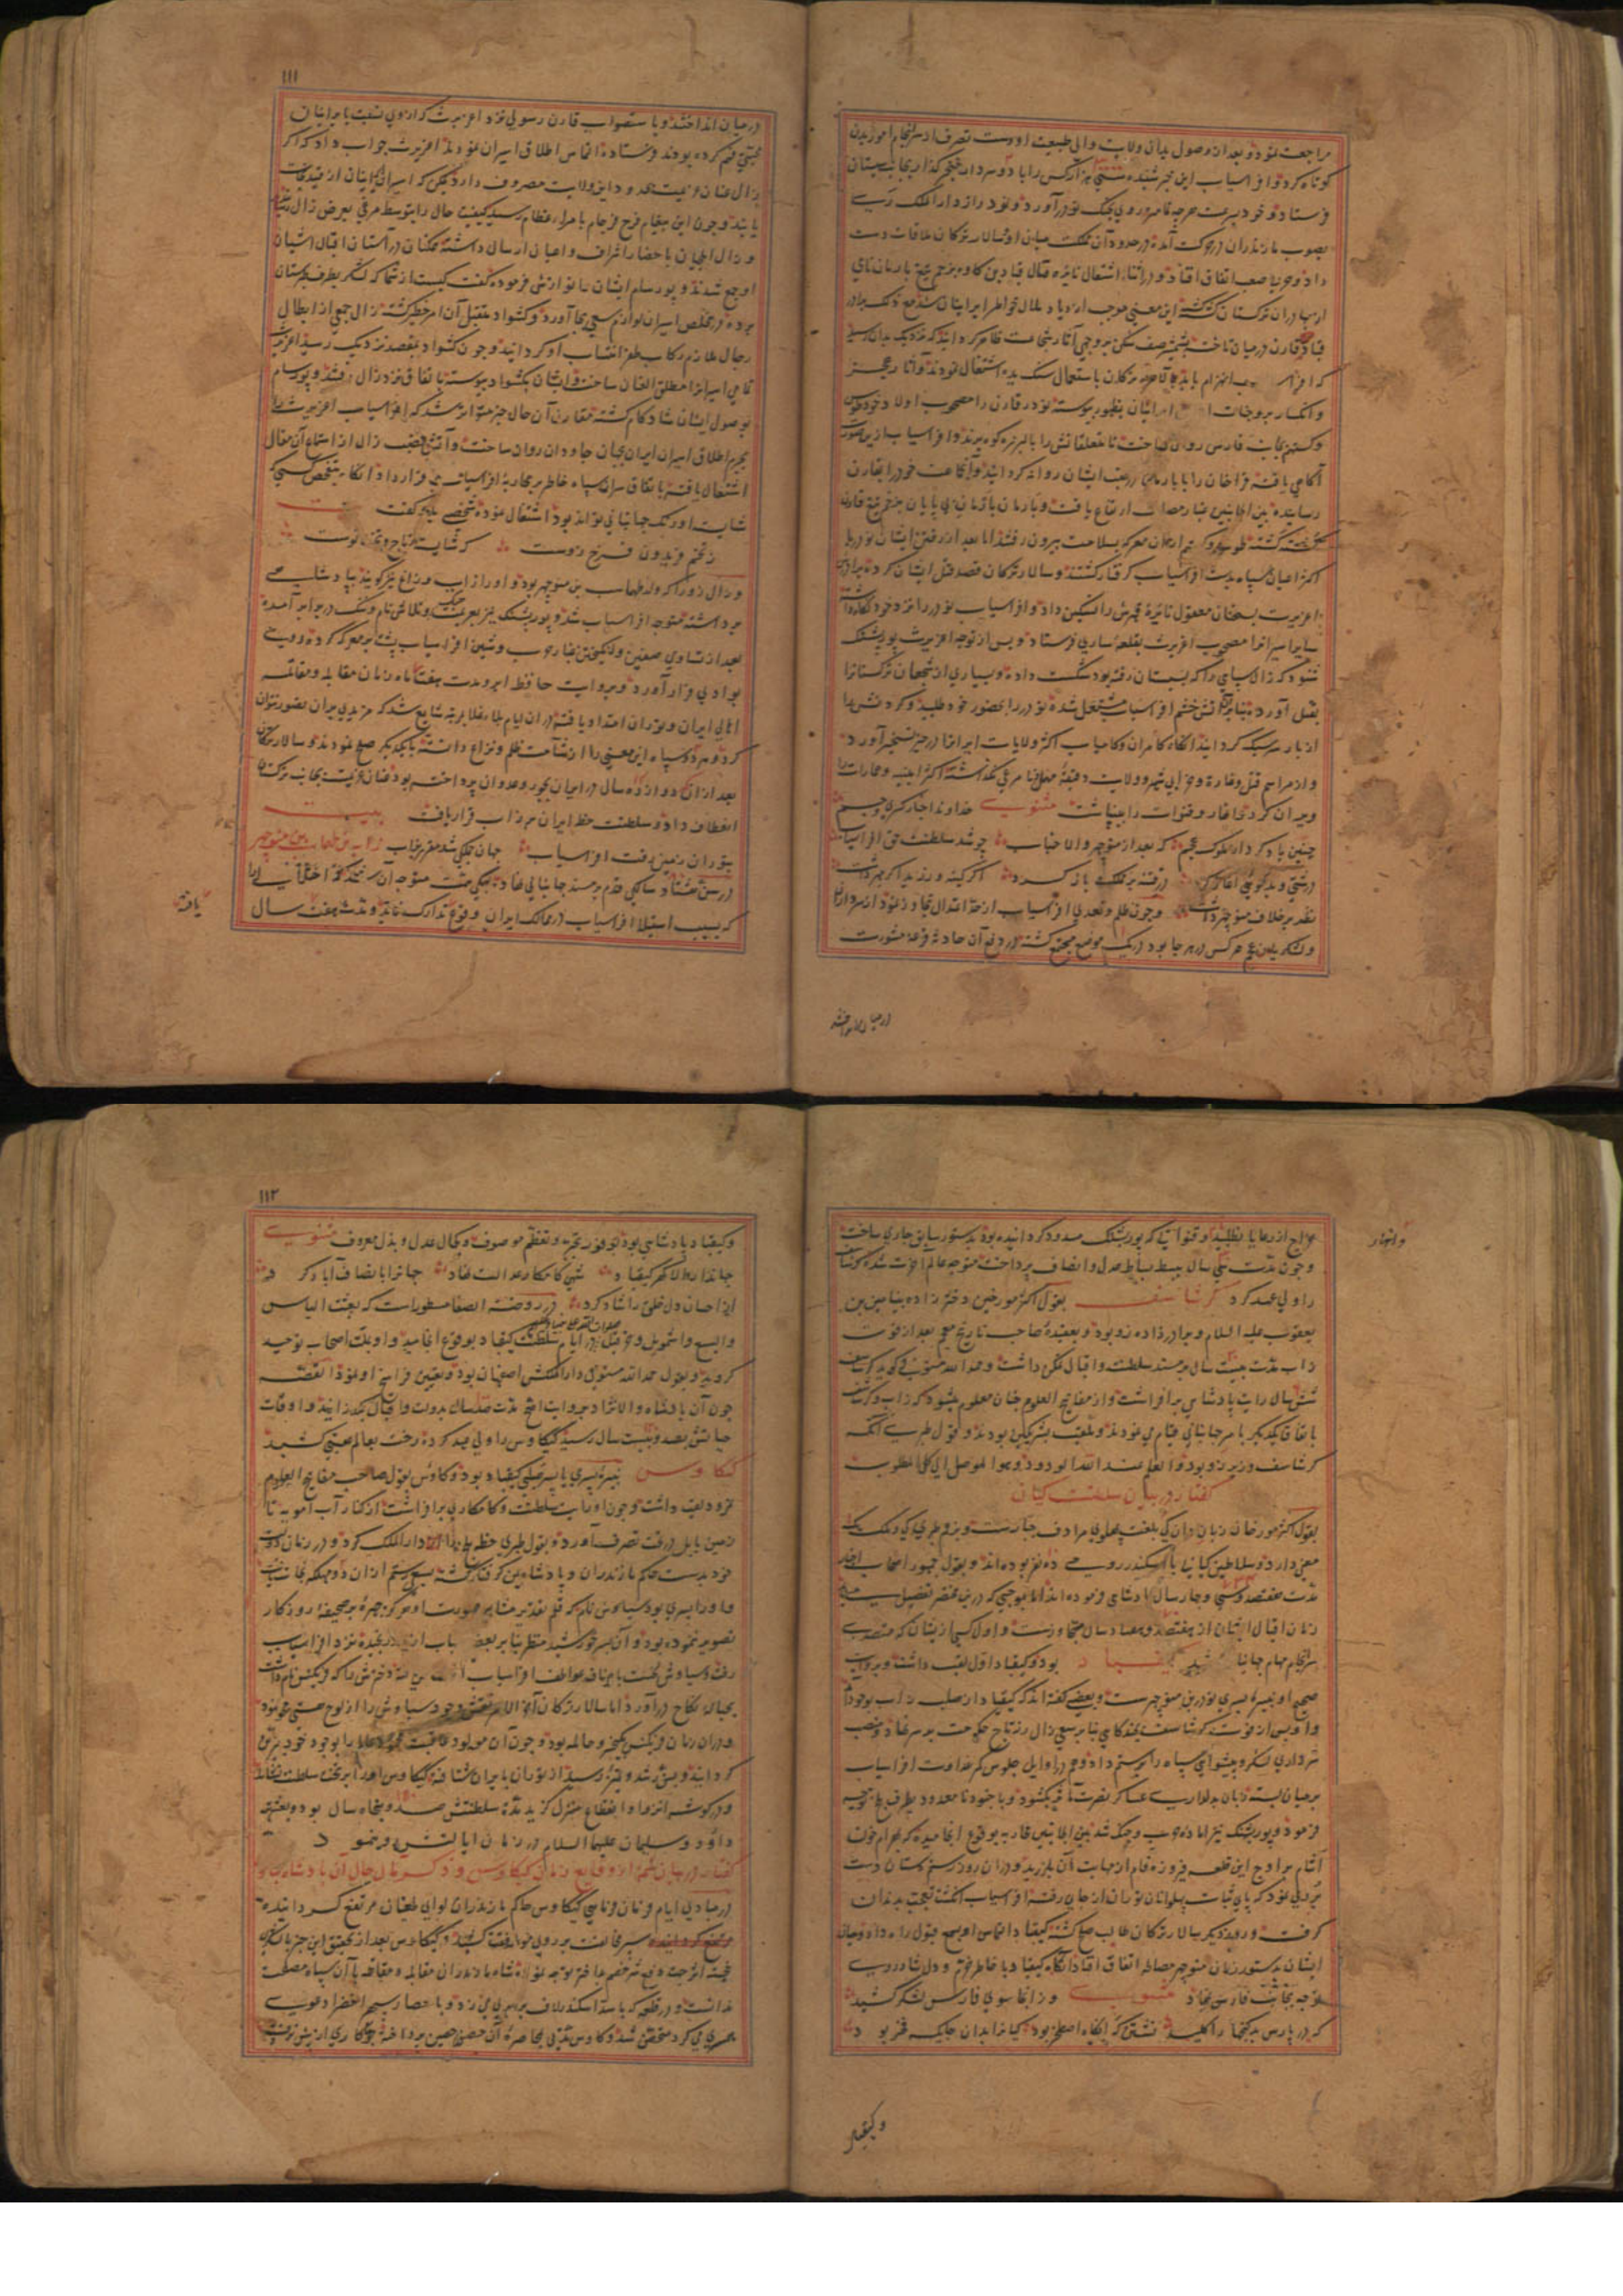 مراجعت نمود و بعد از وصول بدان ولایت والی طبیعت او دست تصرف از سرانجام امور بدن
کوتاه کرد و افراسیاب این خبر شنیده هزار کس را با دو سردار خنجرگذار بجانب سیستان
فرستاد و خود بسرعت هرچه تمامتر روی بجنگ نوذر آورد و نوذر از دار الملک ری
بصوب مازندران در حرکت آمده در حدود آن مملکت میان او و سالار ترکان ملاقات دست
داد و حربها صعب اتفاق افتاد و در اثناء اشتعال نایره قتال قباد بن کاوه بزخم تیغ بارمان نامی
از بهادران ترکستان کشته این معنی موجب ازدیاد ملال خواطر ایرانیان شد
قارن در میان تاخته بشمشیر صف شکن بروجهی آثار شجاعت ظاهر گردانید که نزدیک بدان رسید
که افراسیاب انهزام یابد
و انکسار بر وجنات ایرانیان بظهور پیوسته نوذر قارن را مصحوب اولاد خود طوس
و گستهم بجانب فارس روان ساخت تا متعلقانش را بالبرز کوه برند و افراسیاب ازین صورت
آگاهی یافته قراخان را با بارمان در عقب ایشان روانه گردانید
رسانیده بین الجانبین غبار مصاف ارتفاع یافت و بارمان بزخم تیغ قارن
کشته گشته طوس و گستهم از آن معرکه بسلامت بیرون رفتند اما بعد از رفتن ایشان نوذر با
اکثر اعیان سپاه بدست افراسیاب گرفتار گشتند و سالار ترکان قصد قتل ایشان کرده برادرش
اغریرث بسخنان معقول نایره قهرش را تسکین داد و افراسیاب نوذر را نزد خود نگاه داشته
سایر اسیران را مصحوب اغریرث بقلعه ساری فرستاد و پس از توجه اغریرث پور پشنگ
شنود که زال سپاهی را که بسیستان رفته بود شکست داده و بسیاری از شجعان ترکستانرا
بقتل آورده بنابرآن آتش خشم افراسیاب مشتعل شده نوذر را بحضور خود طلبید و گردنش را
از بار سر سبک گردانید آنگاه کامران و کامیاب اکثر ولایات ایرانرا در حیز تسخیر آورد
و از مراسم قتل و غارت و خرابی شهر و ولایت دقیقه نامرعی نگذاشته اکثر ابنیه و عمارات را
ویران کرد و آبار و قنوات را بینباشت مثنوی خداوند اخبار کسری و جم
چنین یاد کرد از ملوک عجم که بعد از منوچهر والا جناب چو شد سلطنت حق افراسیاب
درشتی و بدخوئی آغاز کرد در فتنه بر مملکت باز کرد
نظر بر خلاف منوچهر داشت و چون ظلم و تعدی افراسیاب از حد اعتدال تجاوز نمود از سرداران
و لشکریان عجم هر کس در هر جا بود در یک موضع مجتمع گشته در دفع آن حادثه قرعه مشورت
در میان انداخته
۱۱۱
در میان انداختند و باستصواب قارن رسولی نزد اغریرث که از روی شفقت با ایرانیان
محبتی فهم کرده بودند فرستاده التماس اطلاق اسیران نمودند اغریرث جواب داد که اگر
زال عنان عزیمت بحدود این ولایت مصروف دارد ممکن که اسیران ایرانیان از قید نجات
یابند و چون این پیغام فرح فرجام بامراء عظام رسید کیفیت حال را بتوسط مرقی بعرض زال رسانیدند
و زال ایلچیان باحضار اشراف و اعیان ارسال داشته همکنان در آستان اقبال آشیان
او جمع شدند و پور سام ایشان را نوازش فرموده گفت کیست از شما که لشکر بطرف طبرستان
برده در تخلص اسیران لوازم سعی بجا آورد و کشواد متقبل آن امر خطیر گشته زال جمعی از ابطال
رجال ملازم رکاب ظفر انتساب او گردانید و چون کشواد بمقصد نزدیک رسید اغریرث
تمامی اسیرانرا مطلق العنان ساخت و ایشان بکشواد پیوسته باتفاق نزد زال رفتند و پور سام
بوصول ایشان شادکام گشته مقارن آن حال خبر متواتر شد که افراسیاب اغریرث را
بجرم اطلاق اسیران ایران بجهان جاودان روان ساخت و آتش غضب زال از استماع آن مقال
اشتعال یافته باتفاق سران سپاه خاطر بر محاربه افراسیاب قرار داد آنگاه بتفحص کسی که
شایسته اورنگ جهانبانی تواند بود اشتغال نموده شخصی گفت بیت
ز تخم فریدون فرخ زوست که شایسته تاج و تخت نوست
و زال زو را که ولد طهماسب بن منوچهر بود و او را زاب و زاغ نیز گویند بپادشاهی
برداشته متوجه افراسیاب شد و پور پشنگ نیز بعزم جنگ و تلاش نام و ننگ در برابر آمده
بعد از تساوی صفین و انگیختن غبار حرب و شین افراسیاب پشت بر معرکه کرده روی
بوادی فرار آورد و بروایت حافظ ابرو مدت هفت ماه زمان مقابله و مقاتله
اهالی ایران و توران امتداد یافته در آن ایام بلاء غلا بمرتبه شایع شد که مزیدی بر آن تصور نتوان
کرد و هر دو سپاه این معنی را از شآمت ظلم و نزاع دانسته با یکدیگر صلح نمودند و سالار ترکان
بعد از آنکه دوازده سال در ایران بجور و عدوان پرداخته بود عنان عزیمت بجانب ترکستان
انعطاف داد و سلطنت خطه ایران بر زاب قرار یافت بیت
بتوران زمین رفت افراسیاب جهان جملگی شد مقرر بزاب زاب بن طهماسب بن منوچهر
در سن هشتاد سالگی قدم بر مسند جهانبانی نهاد و همگی همت متوجه آن ساخت که اختلالی را
که بسبب استیلاء افراسیاب در ممالک ایران وقوع یافته تدارک نماید و مدت هفت سال
یافته
خراج از رعایا نطلبید و قنواتی که پور پشنگ مسدود گردانیده بود بدستور سابق جاری ساخت
وانهار
و چون مدت سی سال ببسط بساط عدل و انصاف پرداخت متوجه عالم آخرت شده گرشاسف
را ولی عهد کرد گرشاسف بقول اکثر مورخین دختر زاده بنیامین بن
یعقوب علیه السلام و برادرزاده زو بود و بعقیده صاحب تاریخ معجم بعد از فوت
زاب مدت بیست سال بر مسند سلطنت و اقبال تمکن داشت و حمد الله مستوفی گوید گرشاسف
شش سال رایت پادشاهی برافراشت و از مفاتیح العلوم چنان معلوم میشود که زاب و گرشاسف
باتفاق یکدیگر بامر جهانبانی قیام می نمودند و ملقب بشریکین بودند و قول طبری آنکه
گرشاسف وزیر زو بود و العلم عند الله الودود و هو الموصل الی کل المطلوب
گفتار در بیان سلطنت کیان
بقول اکثر مورخان زبان دان کی بلغت پهلوی مرادف جبارست و نزد طبری کی ملک
معنی دارد و سلاطین کیانی با اسکندر رومی ده نفر بوده اند و بقول جمهور اصحاب اخبار
مدت هفتصد و سی و چهار سال پادشاهی فرموده اند اما بموجبی که درین مختصر تفصیل
زمان اقبال ایشان از هفتصد و هفتاد سال متجاوزست و اول کسی ازیشان که متصدی
سرانجام مهام جهانبانی شد کیقباد بود و کیقباد اول لقب داشت و بروایت
صحیح او نبیره پسری نوذر بن منوچهرست و بعضی گفته اند که کیقباد از صلب زاب بوجود آمد
و او پس از فوت گرشاسف بهنگامی بنابر سعی زال زر تاج حکومت بر سر نهاد و منصب
سرداری لشکر و پیشوائی سپاه را برستم داد و هم در اوایل جلوس کمر عداوت افراسیاب
بر میان بسته زبان بدلداری عساکر نصرت مآثر بگشود و با جنود نامعدود بطرف ... توجیه
فرمود و پور پشنگ نیز آماده حرب و جنگ شده بین الجانبین محاربه بوقوع انجامید که بهرام خون
آشام بر اوج این قلعه فیروزه فام از مهابت آن بلرزید و در آن روز رستم دستان دست
بردی نمود که پای ثبات پهلوانان توران از جای رفته افراسیاب انگشت تعجب بدندان
گرفت و روز دیگر سالار ترکان طالب صلح گشته کیقباد التماس او را بسمع قبول راه داد و میان
ایشان بدستور زمان منوچهر مصالحه اتفاق افتاد آنگاه کیقباد با خاطر خرم و دل شاد روی
توجه بجانب فارس نهاد مثنوی وز آنجا سوی فارس لشکر کشید
که در پارس بد گنجها را کلید نشستن گه آنگاه اصطخر بود کیانرا بدان جایگه فخر بود
و کیقباد
۱۱۲
و کیقباد پادشاهی بود بوفور تجربه و تعظم موصوف و بکمال عدل و بذل معروف مثنوی
جهاندار والا گهر کیقباد شهی کامکار عدالت نهاد جهانرا بانصاف آباد کرد
از احسان دل خلق را شاد کرد در روضة الصفا مسطورست که بعثت الیاس
والیسع واشمویل و حزقیل در ایام سلطنت کیقباد بوقوع انجامید و او بملت اصحاب توحید
گروید و بقول حمد الله مستوفی دار الملکش اصفهان بود و تعیین فراسخ او نمود القصه
چون آن پادشاه والا نژاد بروایت اصح مدت صد سال بدولت و اقبال بگذرانید و اوقات
حیاتش بصد و بیست سال رسید کیکاوس را ولی عهد کرده رخت بعالم عقبی کشید
کیکاوس نبیره پسری یا پسر صلبی کیقباد بود و کاوس بقول صاحب مفاتیح العلوم
نمرود لقب داشت و چون او رایت سلطنت و کامکاری برافراشت از کنار آب آمویه تا
زمین بابل در تحت تصرف آورد و بقول طبری خطه بلخ را دار الملک کرد و در زمان دولت
خود بدست حاکم مازندران و پادشاه یمن گرفتار گشته بسعی رستم از آن دو مهلکه نجات یافت
و او را پسری بود سیاوش نام که قلم تقدیر مشابه صورت او هرگز چهره بر صحیفه روزگار
تصویر ننموده بود و آن پسر خورشید منظر بنابر بعضی اسباب از پدر رنجیده نزد افراسیاب
رفت و سیاوش نخست باصناف عواطف افراسیاب دخترش را که فرنگیس نام داشت
بحباله نکاح درآورد اما سالار ترکان آخر الامر نقش وجود سیاوش را از لوح هستی محو نمود
و در آن زمان فرنگیس بکیخسرو حامله بود و چون آن مولود عاقبت محمود عالم را بوجود خود مزین
گردانید و بسن رشد و تمیز رسید از توران بایران شتافته کیکاوس او را بر تخت سلطنت نشاند
و در گوشه انزوا و انقطاع منزل گزید مدت سلطنتش صد و پنجاه سال بود و بعثت
داود و سلیمان علیهما السلام در زمان ایالتش روی نمود
گفتار در بیان شمه از وقایع زمان کیکاوس و ذکر مآل حال آن پادشاه
در مبادی ایام فرمان فرمایی کیکاوس حاکم مازندران لوای طغیان مرتفع گردانیده
سپر مخالفت بر روی موافقت کشید و کیکاوس بعد از تحقیق این خبر با لشکری
خجسته اثر جهت دفع شر خصم بداختر توجه نمود و شاه مازندران مقابله و مقاتله با آن سپاه مصلحت
ندانست و در قلعه که با سد اسکندر لاف برابری می زد و با حصار سپهر اخضر دعوی
همسری می کرد متحصن شد و کاوس مدتی بمحاصره آن حصن حصین پرداخته چون کاری از پیش نرفت